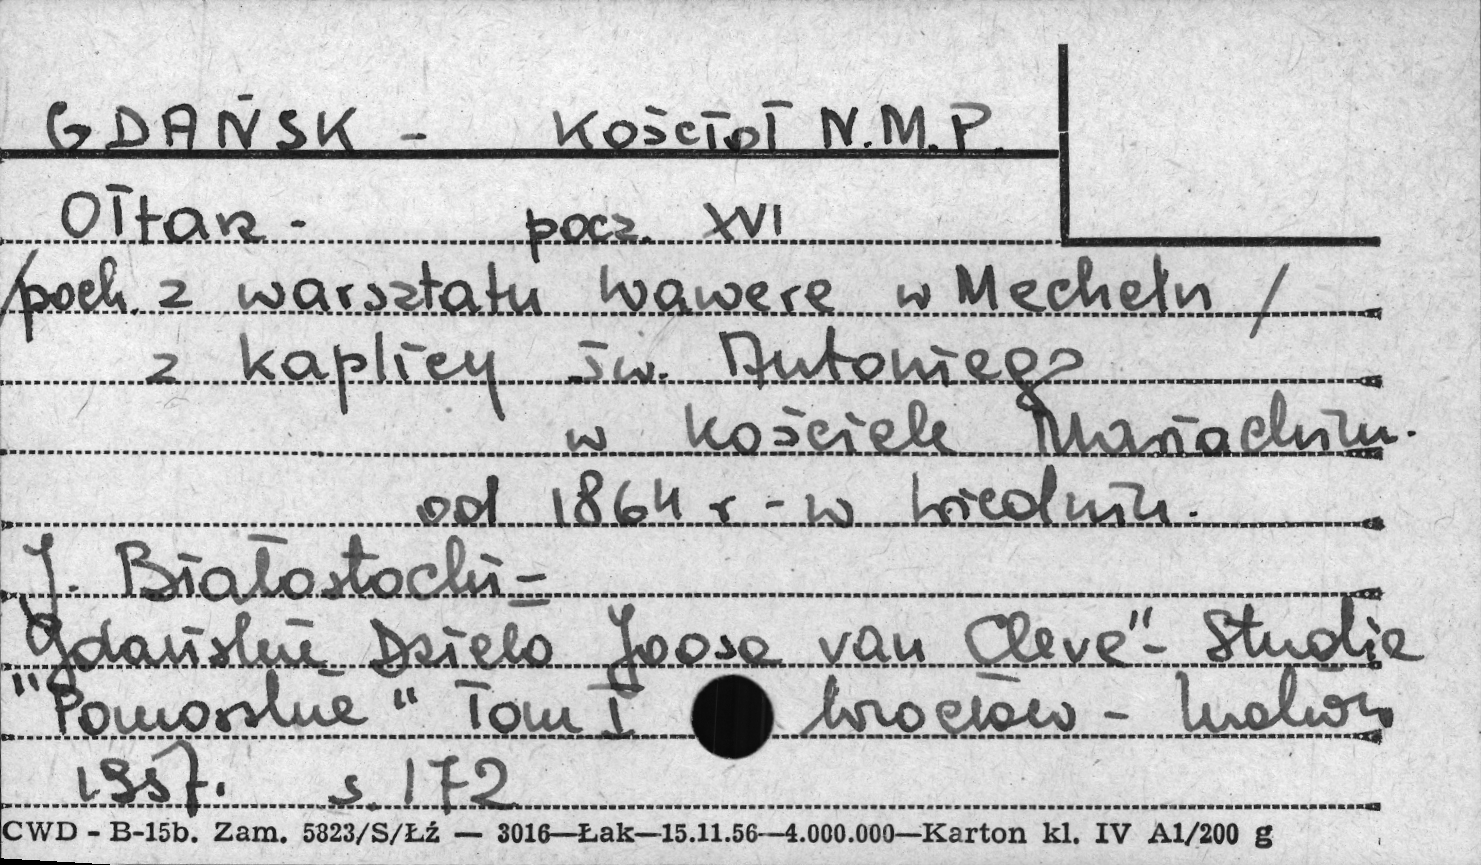 GDAŃSK - Kościoł N.M.P.
Ołtarz - pocz. XVI
/poch. z warsztatu Wawere w Mecheln /
z kaplicy św. Antoniego
w kościele Mariackim.
od 1864 r - w Wiedniu.
J. Białostocki =
"Gdańskie Dzieło Joosa van Cleve" - Studia
"Pomorskie" Tom I Wrocław - Kraków
1957. s. 172
CWD - B-15b. Zam. 5823/S/Łź — 3016—Łak—15.11.56—4.000.000—Karton kl. IV A1/200 g